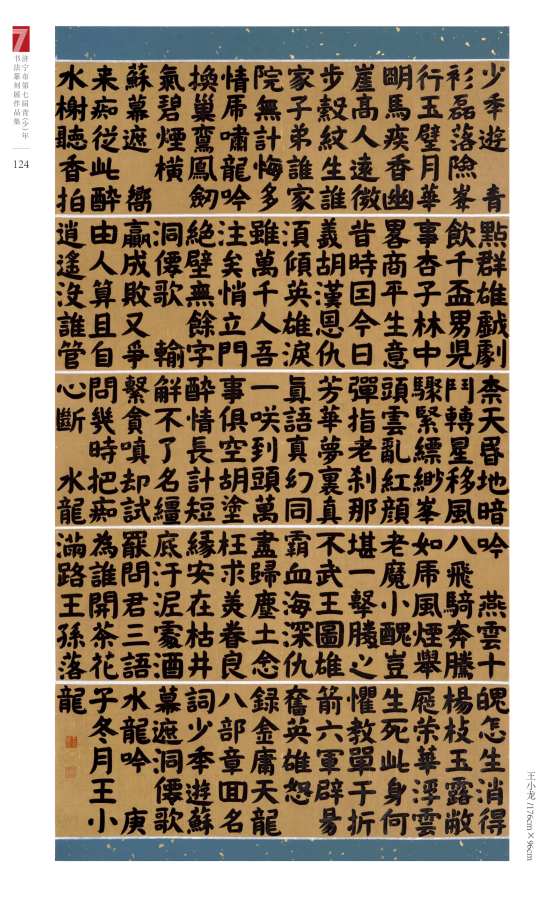 济宁市第七届青(少)年
书法篆刻展作品集
124
少年遊 青
衫磊落險峯
行玉璧月華
明馬疾香幽
崖高人遠微
步縠紋生誰
家子弟誰家
院無計悔多
情虎嘯龍吟
換巢鸞鳳劒
氣碧煙橫
蘇幕遮 嚮
来痴従此醉
水榭聽香拍
點群雄戲劇
飲千盃男兒
事杏子林中
畧商平生意
昔時因今日
義胡漢恩仇
湏傾英雄淚
雖萬千人吾
注矣悄立門
絕壁無餘字
洞僊歌 輸
贏成敗又爭
由人算且自
逍遙沒誰管
柰天昏地暗
鬥轉星移風
驟緊縹緲峯
頭雲亂紅顏
彈指老刹那
芳華夢裏真
眞語真幻同
一咲到頭萬
事俱空胡塗
醉情長計短
解不了名韁
繫貪嗔却試
問幾時把痴
心斷 水龍
吟 燕雲十
八飛騎奔騰
如虎風煙舉
老魔小醜豈
堪一擊勝之
不武王圖雄
霸血海深仇
盡歸塵土念
枉求美眷良
緣安在枯井
底汙泥處酒
罷問君三語
為誰開茶花
滿路王孫落
魄怎生消得
楊枝玉露敝
屣榮華浮雲
生死此身何
懼教單于折
箭六軍辟昜
奮英雄怒
録金庸天龍
八部章回名
詞少年遊蘇
幕遮洞僊歌
水龍吟 庚
子冬月王小
龍
王小龙/176cm×96cm